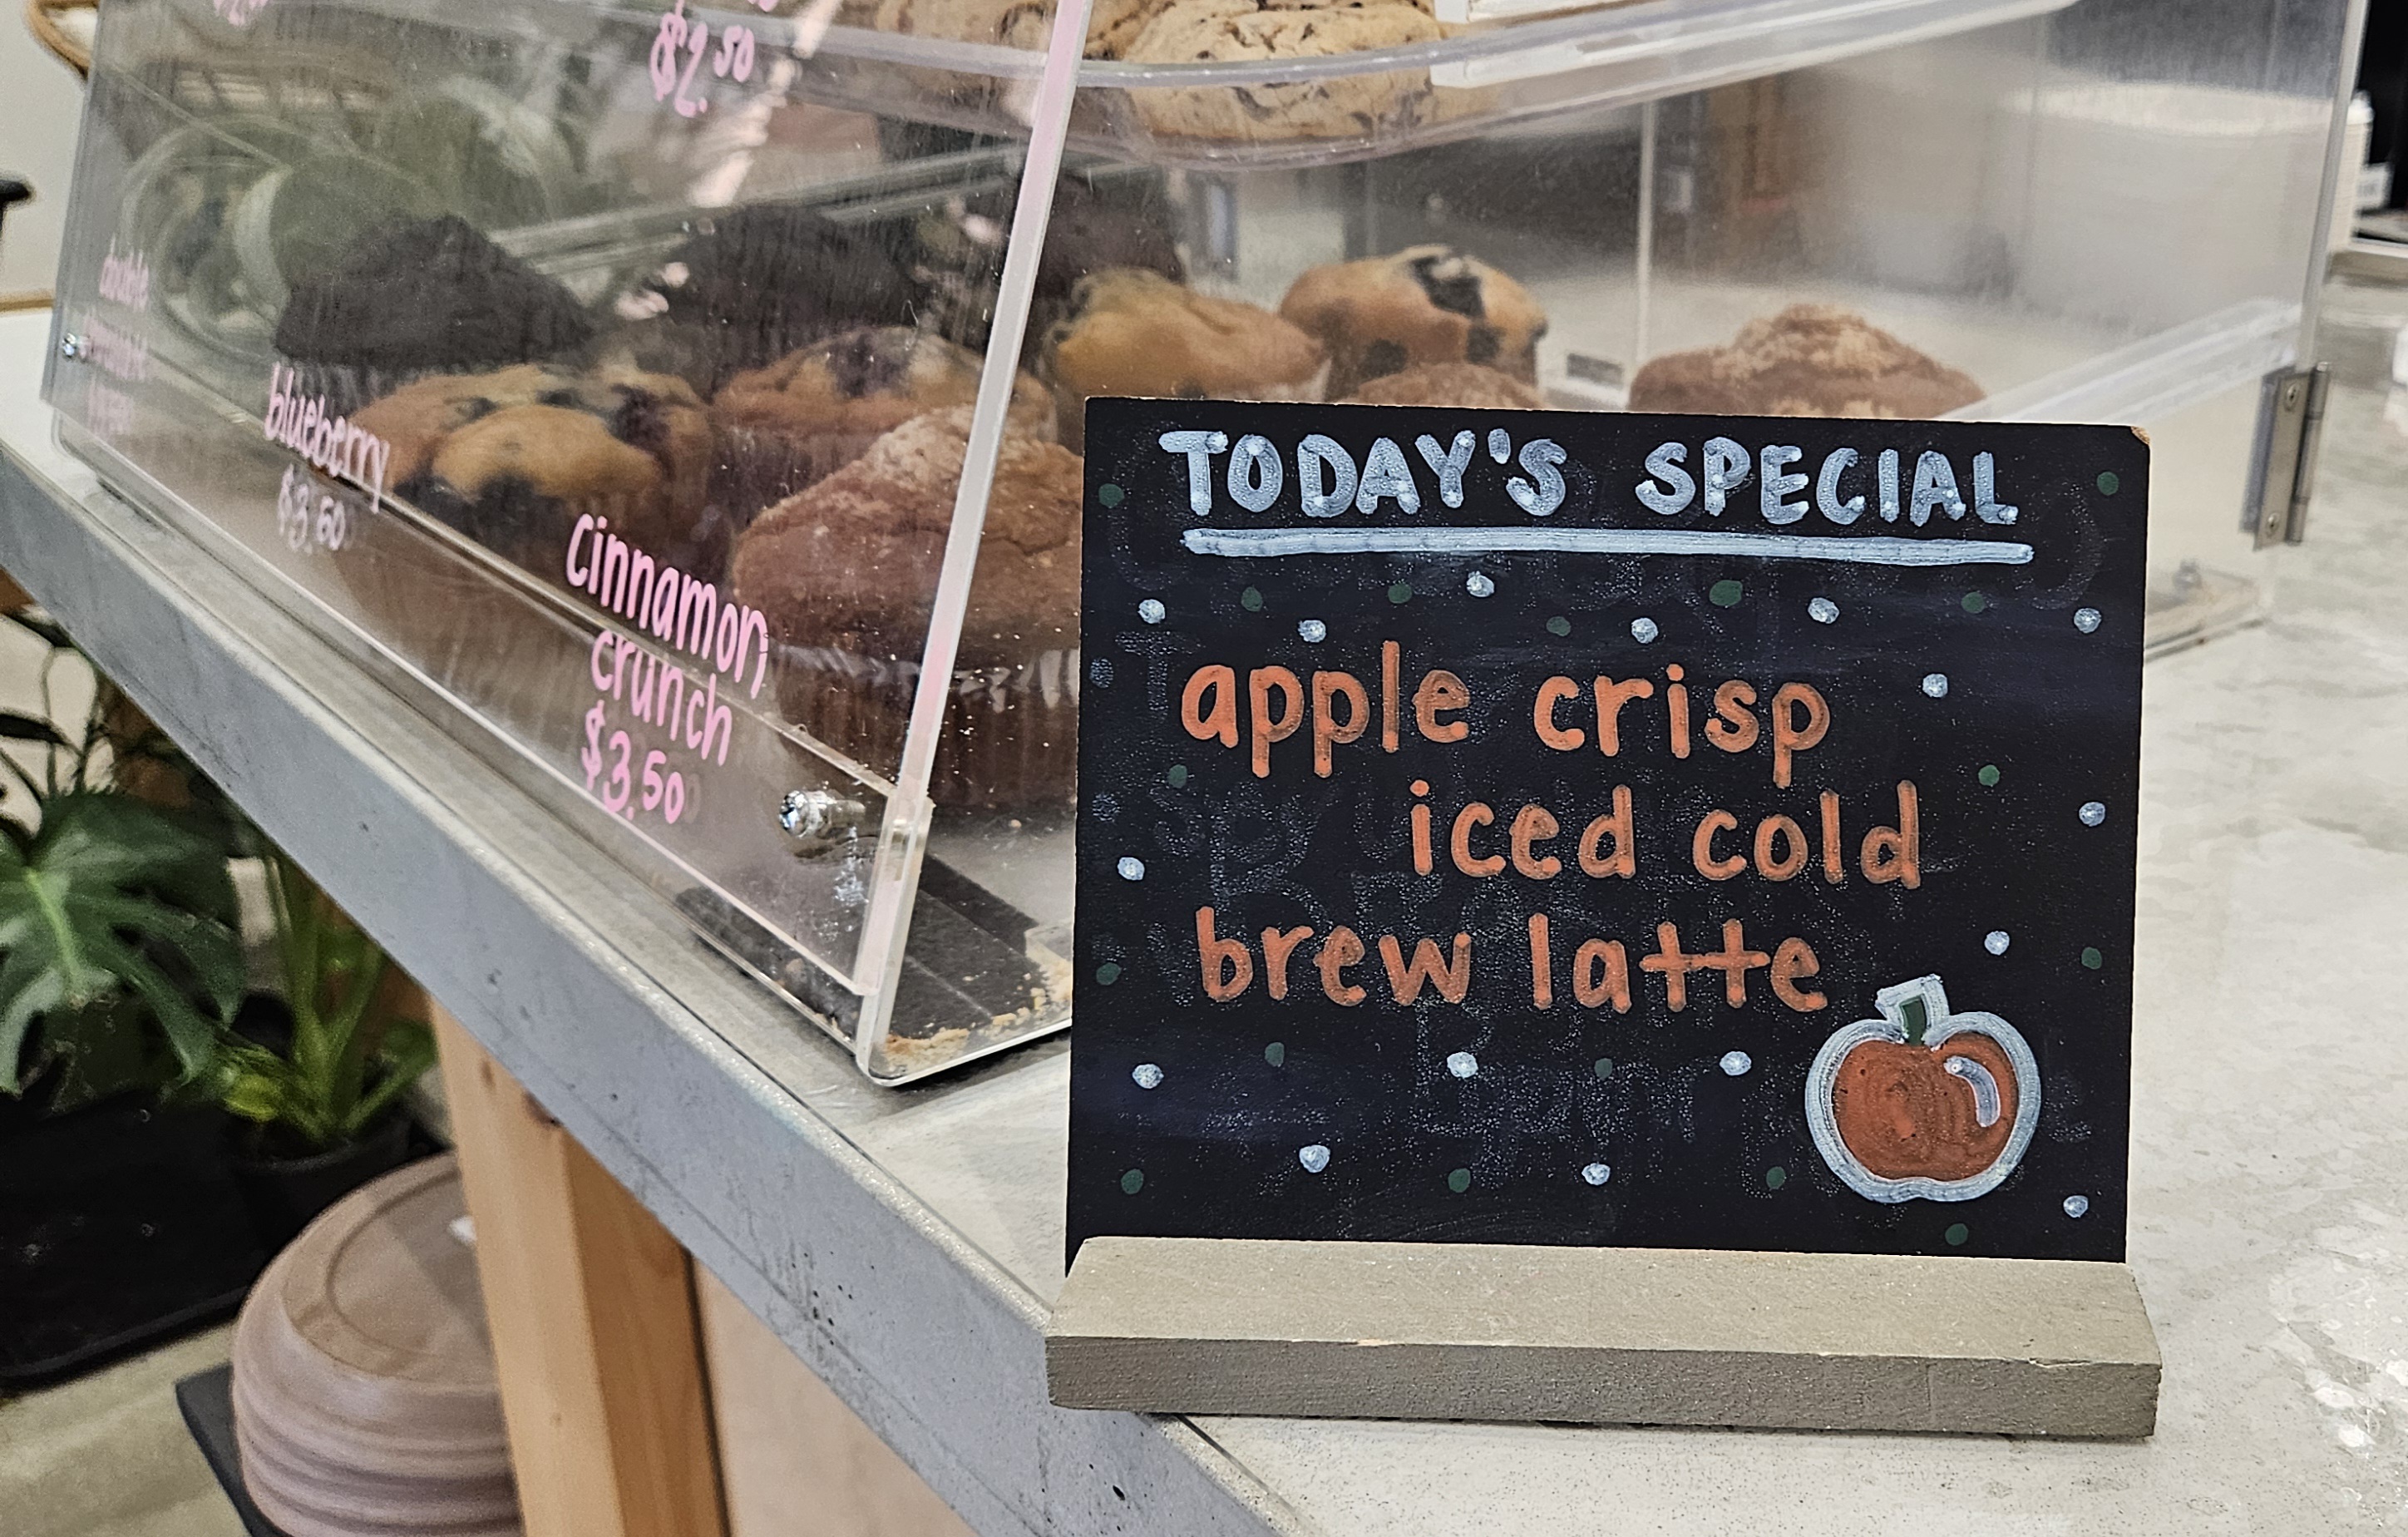 $2.50
blueberry
$3.50
cinnamon
crunch
$3.50
TODAY'S SPECIAL
apple crisp
iced cold
brew latte